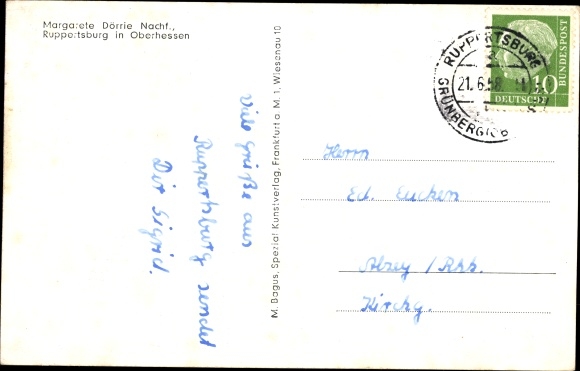 Margarete Dörrie Nachf.,
Ruppertsburg in Oberhessen
Viele Grüße aus
Ruppertsburg sendet
Dir Sigrid.
M. Bagus, Spezial Kunstverlag, Frankfurt a. M. 1, Wiesenau 10
RUPPERTSBURG
21. 6. 58
GRÜNBERG
10
DEUTSCHE
BUNDESPOST
Herrn
Ed. Eucken
Alzey / Rhh.
Kirchg.